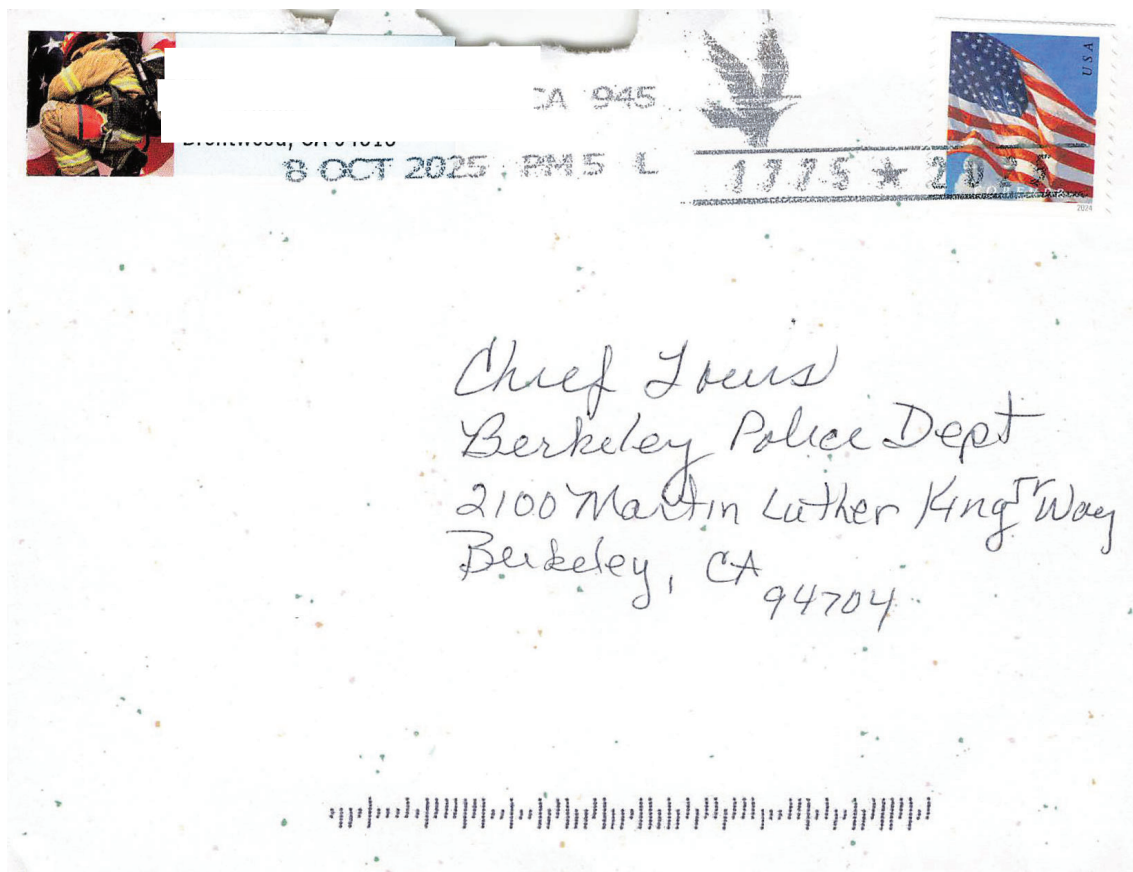 CA 945
8 OCT 2025 PM 5 L
1775 ★ 20
USA
FOREVER
2024
Chief Louis
Berkeley Police Dept
2100 Martin Luther King Jr Way
Berkeley, CA
94704